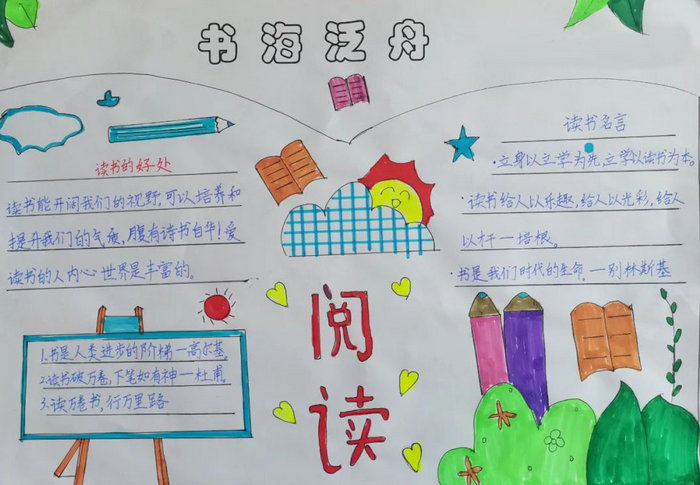 书海泛舟
读书的好处
读书能开阔我们的视野,可以培养和
提升我们的气质,腹有诗书自华!爱
读书的人内心世界是丰富的。
1.书是人类进步的阶梯—高尔基。
2.读书破万卷,下笔如有神—杜甫。
3.读万卷书,行万里路
阅读
读书名言
·立身以立学为先,立学以读书为本。
·读书给人以乐趣,给人以光彩,给人
以才干—培根。
·书是我们时代的生命.—别林斯基